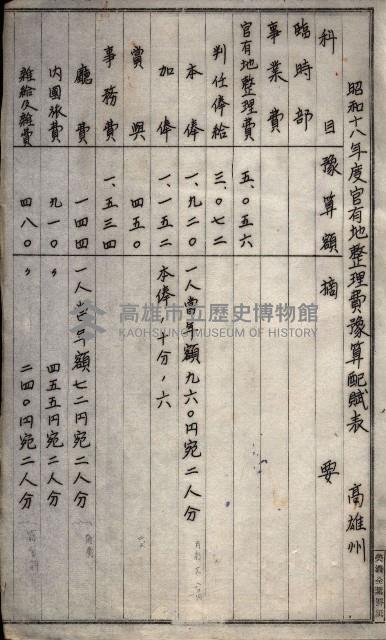 昭和十八年度官有地整理費豫算配賦表 高雄州
科目 豫算額 摘要
臨時部
事業費
官有地整理費 五、〇五六
判任俸給 三、〇七二
本俸 一、九二〇 一人當年額九六〇円宛二人分
加俸 一、一五二 本俸ノ十分ノ六
賞與 四五〇
事務費 一、五三四
廳費 一四四 一人当年額七二円宛二人分
内國旅費 九一〇 〃 四五五円宛二人分
雜給及雜費 四八〇 〃 二四〇円宛二人分
高雄市立歷史博物館
KAOHSIUNG MUSEUM OF HISTORY